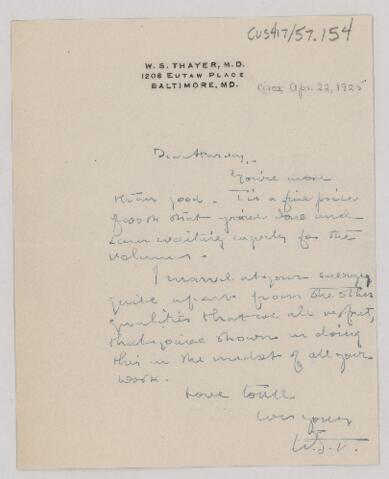 CUS417/57.154
W. S. THAYER, M.D.
1208 EUTAW PLACE
BALTIMORE, MD.
circa Apr. 22, 1925
Dear Harvey,
You're more
than good. Tis a fine piece
of work that you've done and
I am waiting eagerly for the
volumes.
I marvel at your energy
quite apart from the other
qualities that we all respect,
that you've shown in doing
this in the midst of all your
work.
Love to all
W.S.T.